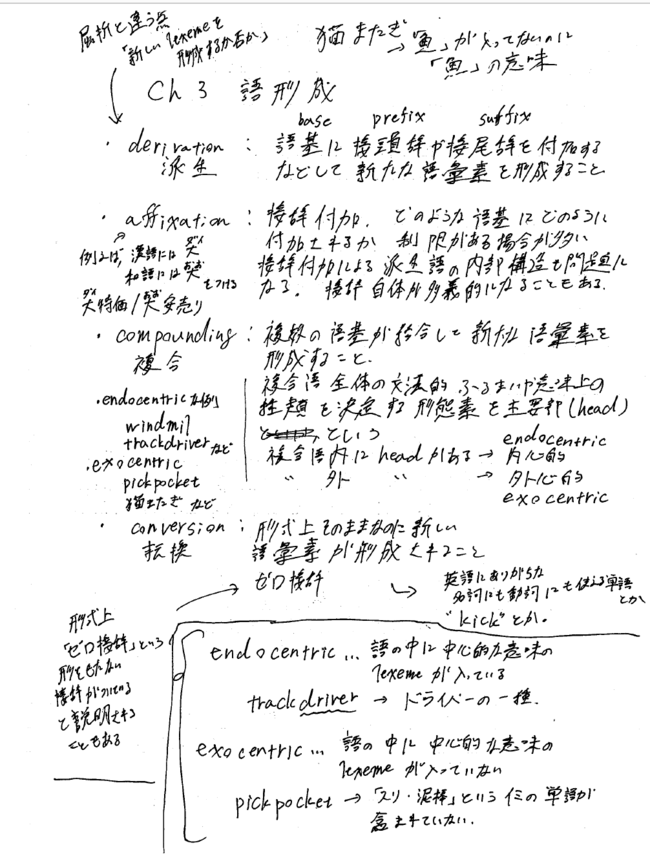 屈折と違う点
「新しい lexemeを
形成するか否か」
猫またぎ
→「魚」が入ってないのに
「魚」の意味
Ch 3 語形成
base prefix suffix
・derivation : 語基に接頭辞や接尾辞を付加する
派生 などして新たな語彙素を形成すること
・affixation : 接辞付加. どのような語基にどのように
付加されるか制限がある場合が多い
接辞付加による派生語の内部構造も問題に
なる. 接辞自体が多義的になることもある.
例えば, 漢語には大 ダイ
和語には大 をつける
大特価/大安売り
・compounding : 複数の語基が結合して新たな語彙素を
複合 形成すること.
複合語全体の文法的ふるまいや意味上の
性質を決定する形態素を主要部(head)
という
複合語内にheadがある → 内心的 endocentric
〃 外 〃 → 外心的 exocentric
・endocentricな例
windmil
trackdriver など
・exocentric
pickpocket
猫またぎ など
・conversion : 形式上そのままなのに新しい
転換 語彙素が形成されること
→ ゼロ接辞
英語にありがちな
名詞にも動詞にも使える単語とか
"kick"とか.
形式上
「ゼロ接辞」という
形をもたない
接辞がついている
と説明される
こともある
endocentric … 語の中に中心的な意味の
lexemeが入っている
trackdriver → ドライバーの一種.
exocentric … 語の中に中心的な意味の
lexemeが入っていない
pickpocket → 「スリ・泥棒」という の単語が
含まれていない.